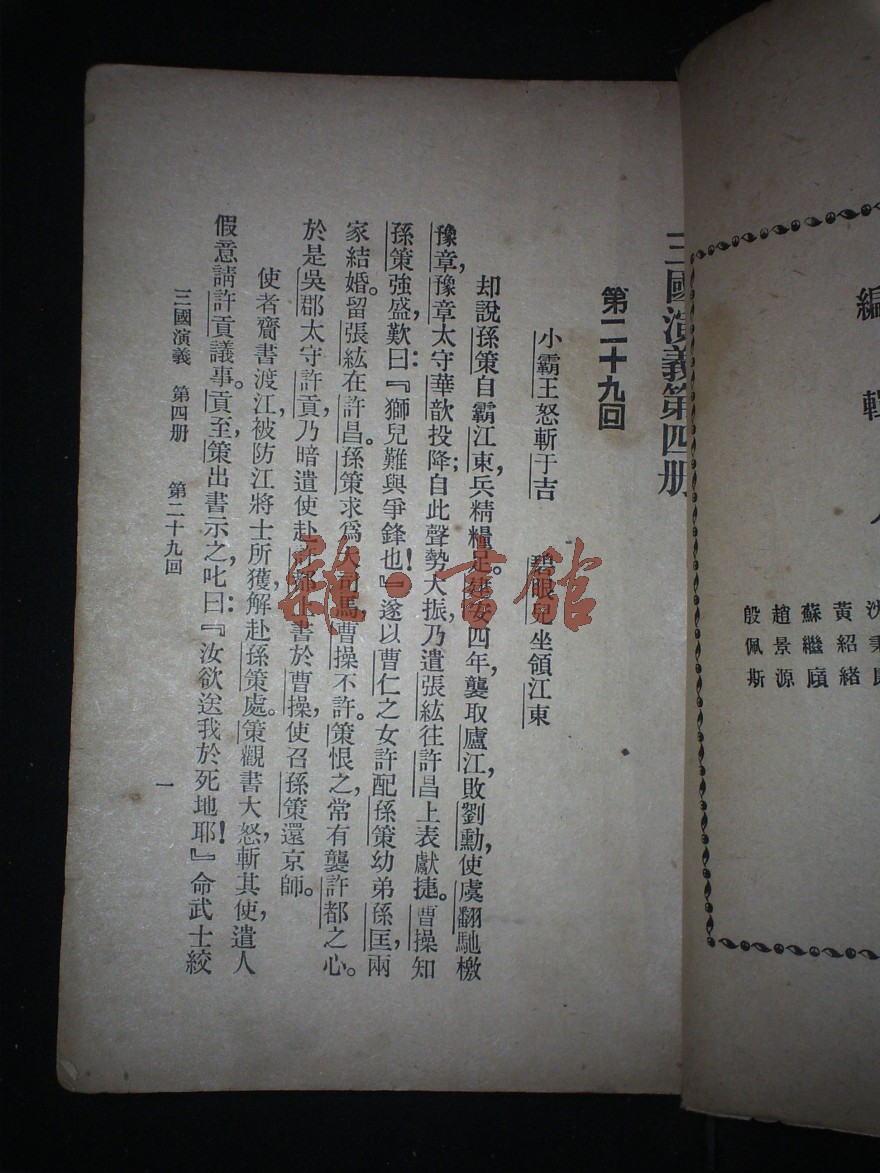 編輯人
黃紹緒
蘇繼廎
趙景源
殷佩斯
三國演義第四册
第二十九回
小霸王怒斬于吉　碧眼兒坐領江東
却說孫策自霸江東，兵精糧足。建安四年，襲取廬江，敗劉勳，使虞翻馳檄
豫章，豫章太守華歆投降；自此聲勢大振，乃遣張紘往許昌上表獻捷。曹操知
孫策強盛，歎曰：『獅兒難與爭鋒也！』遂以曹仁之女許配孫策幼弟孫匡，兩
家結婚。留張紘在許昌。孫策求爲大司馬，曹操不許。策恨之，常有襲許都之心。
於是吳郡太守許貢，乃暗遣使赴許都上書於曹操，使召孫策還京師。
使者齎書渡江，被防江將士所獲，解赴孫策處。策觀書大怒，斬其使，遣人
假意請許貢議事。貢至，策出書示之，叱曰：『汝欲送我於死地耶！』命武士絞
三國演義　第四册　第二十九回　一
雜·書館